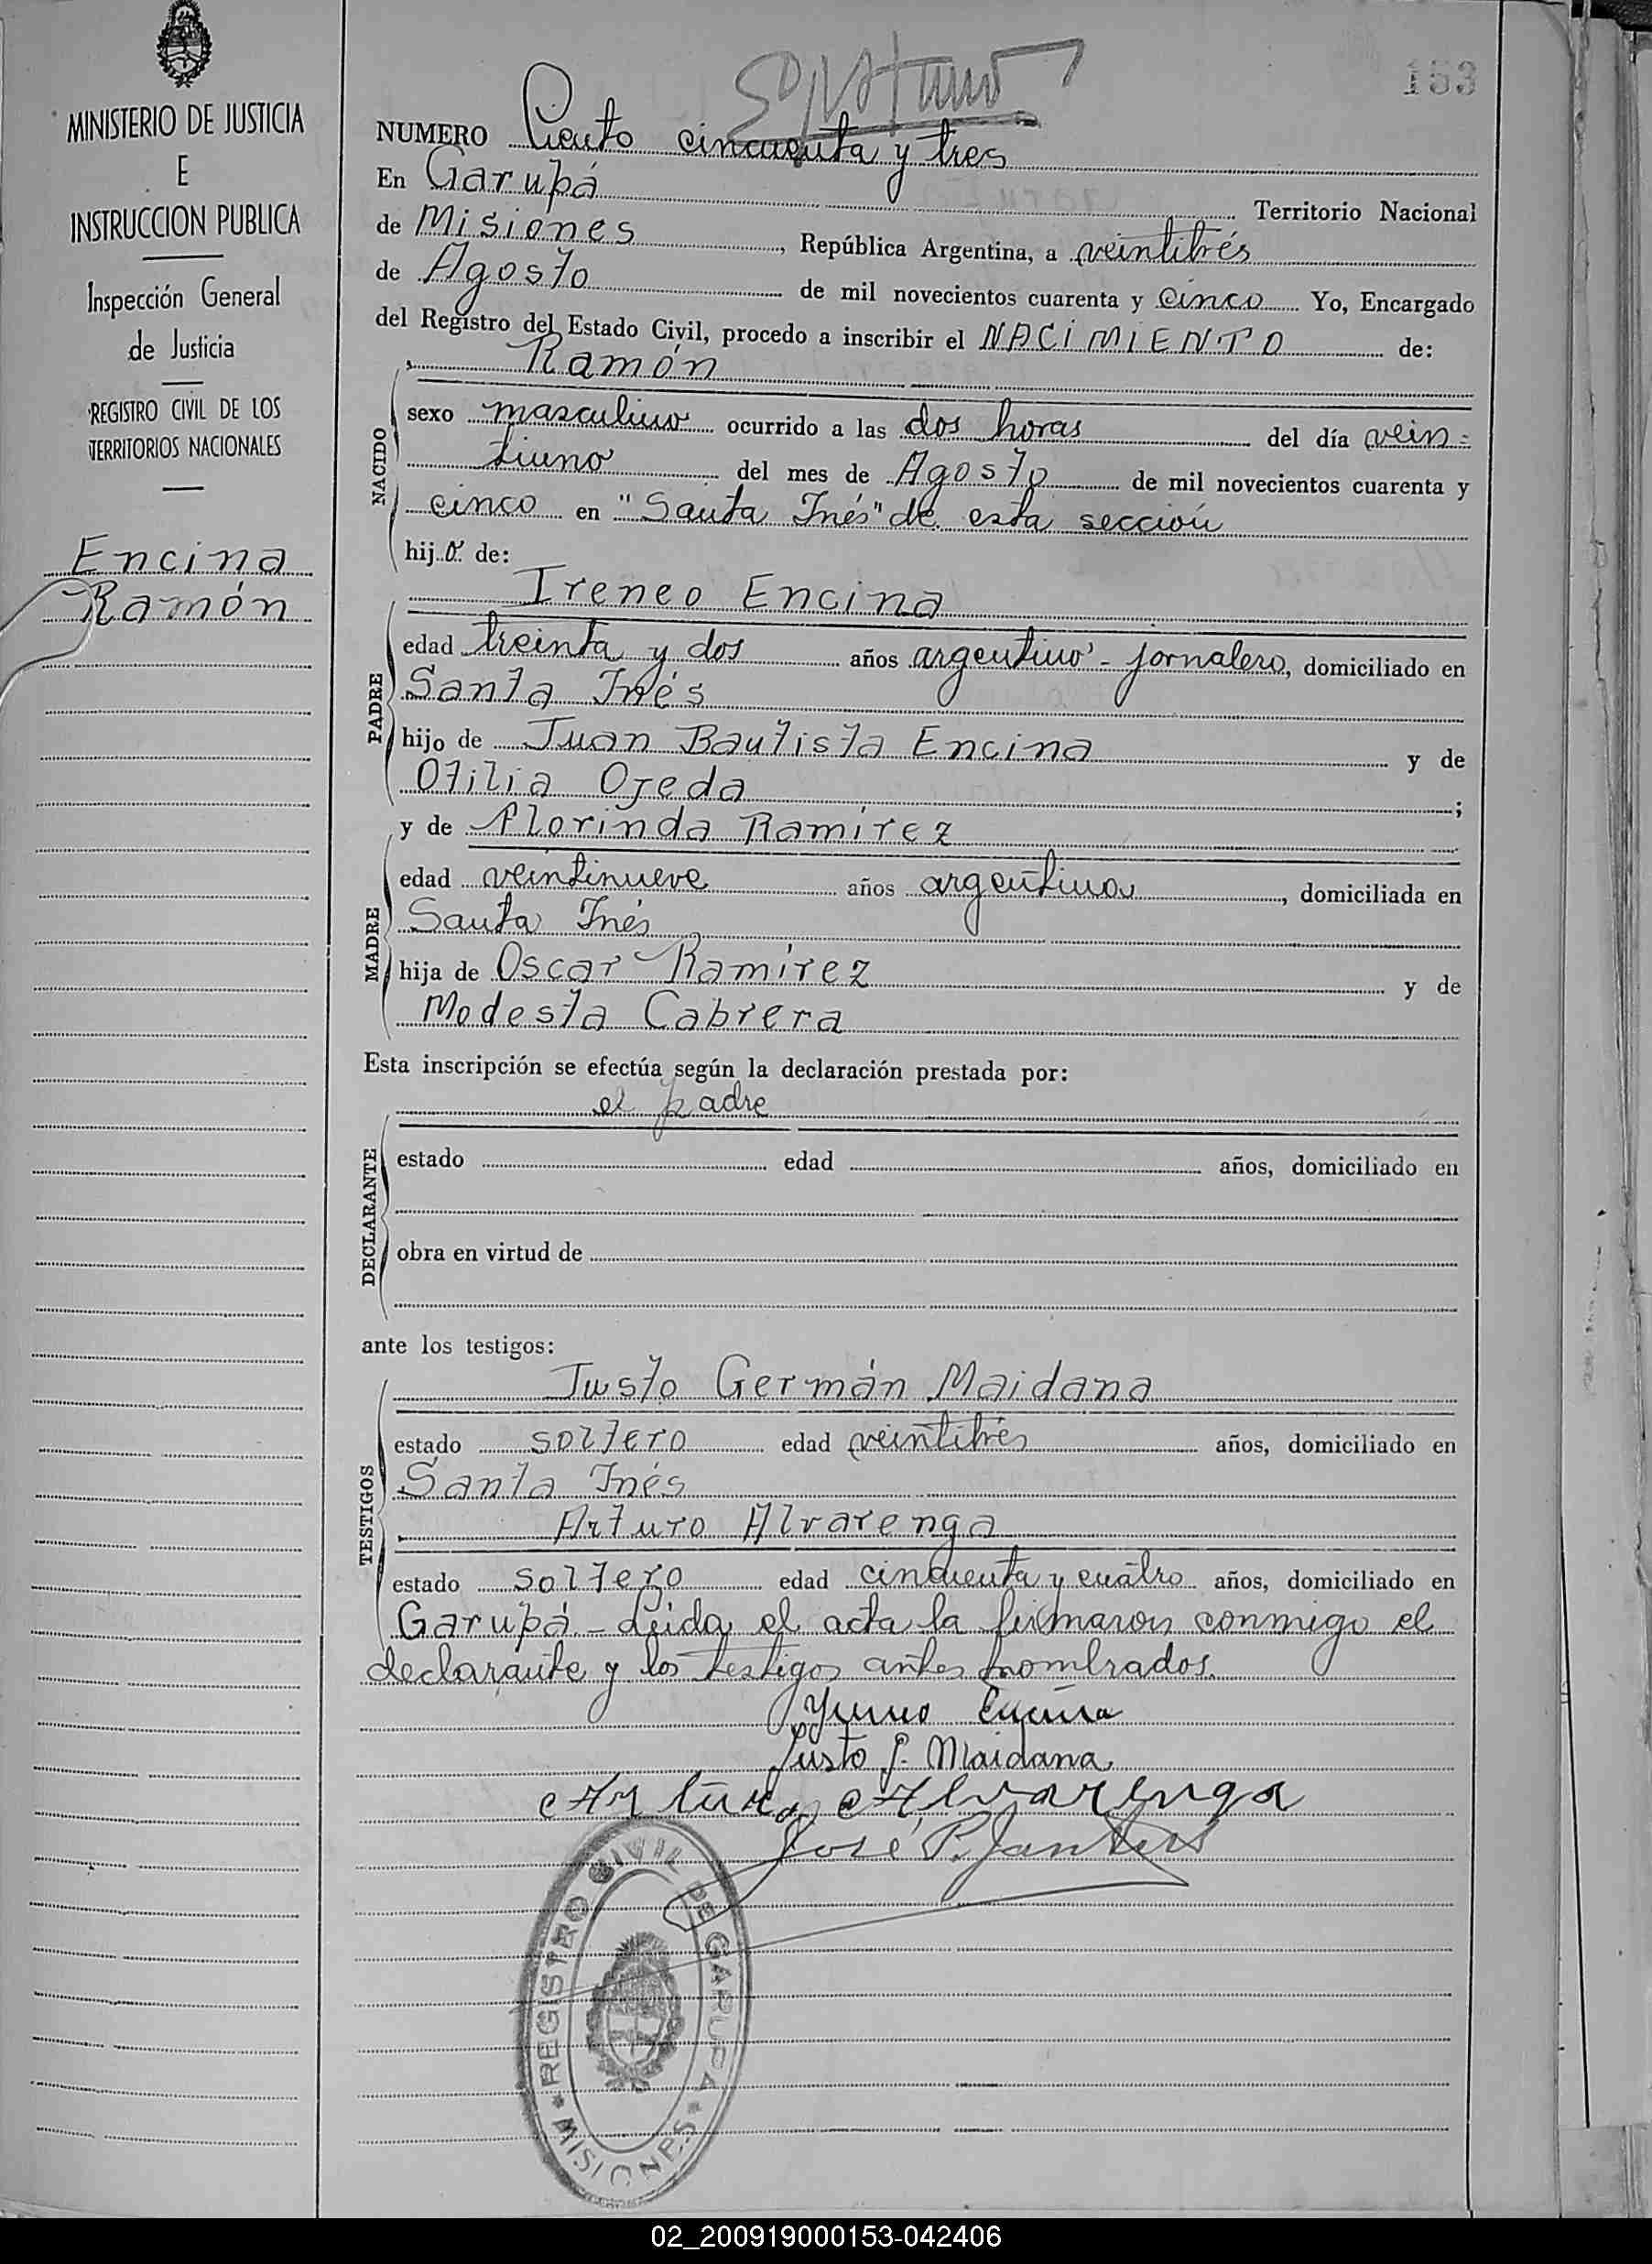 MINISTERIO DE JUSTICIA
E
INSTRUCCION PUBLICA
Inspección General
de Justicia
REGISTRO CIVIL DE LOS
TERRITORIOS NACIONALES
Encina
Ramón
153
NUMERO Ciento cincuenta y tres
En Garupá Territorio Nacional
de Misiones, República Argentina, a veintitrés
de Agosto de mil novecientos cuarenta y cinco Yo, Encargado
del Registro del Estado Civil, procedo a inscribir el NACIMIENTO de:
Ramón
NACIDO
sexo masculino ocurrido a las dos horas del día vein=
tiuno del mes de Agosto de mil novecientos cuarenta y
cinco en "Santa Inés" de esta sección
hijo de:
Ireneo Encina
PADRE
edad treinta y dos años argentino - jornalero, domiciliado en
Santa Inés
hijo de Juan Bautista Encina y de
Otilia Ojeda;
y de Florinda Ramírez
MADRE
edad veintinueve años argentina, domiciliada en
Santa Inés
hija de Oscar Ramírez y de
Modesta Cabrera
Esta inscripción se efectúa según la declaración prestada por:
el padre
DECLARANTE
estado edad años, domiciliado en
obra en virtud de
ante los testigos:
Justo Germán Maidana
TESTIGOS
estado soltero edad veintitrés años, domiciliado en
Santa Inés
Arturo Alvarenga
estado soltero edad cincuenta y cuatro años, domiciliado en
Garupá - Leida el acta la firmaron conmigo el
declarante y los testigos antes nombrados.
Encina
Justo G. Maidana
Arturo Alvarenga
José P.
REGISTRO CIVIL DE GARUPA
MISIONES
02_200919000153-042406